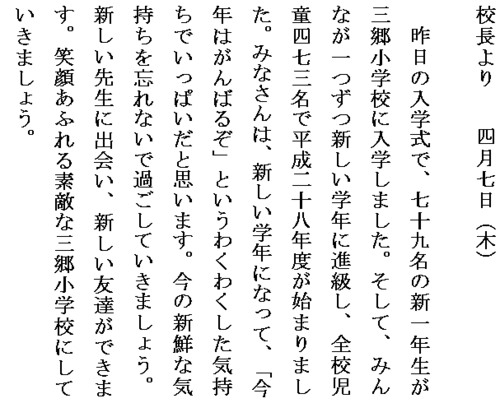 校長より　　四月七日（木）
　昨日の入学式で、七十九名の新一年生が
三郷小学校に入学しました。そして、みん
なが一つずつ新しい学年に進級し、全校児
童四七三名で平成二十八年度が始まりまし
た。みなさんは、新しい学年になって、「今
年はがんばるぞ」というわくわくした気持
ちでいっぱいだと思います。今の新鮮な気
持ちを忘れないで過ごしていきましょう。
新しい先生に出会い、新しい友達ができま
す。笑顔あふれる素敵な三郷小学校にして
いきましょう。